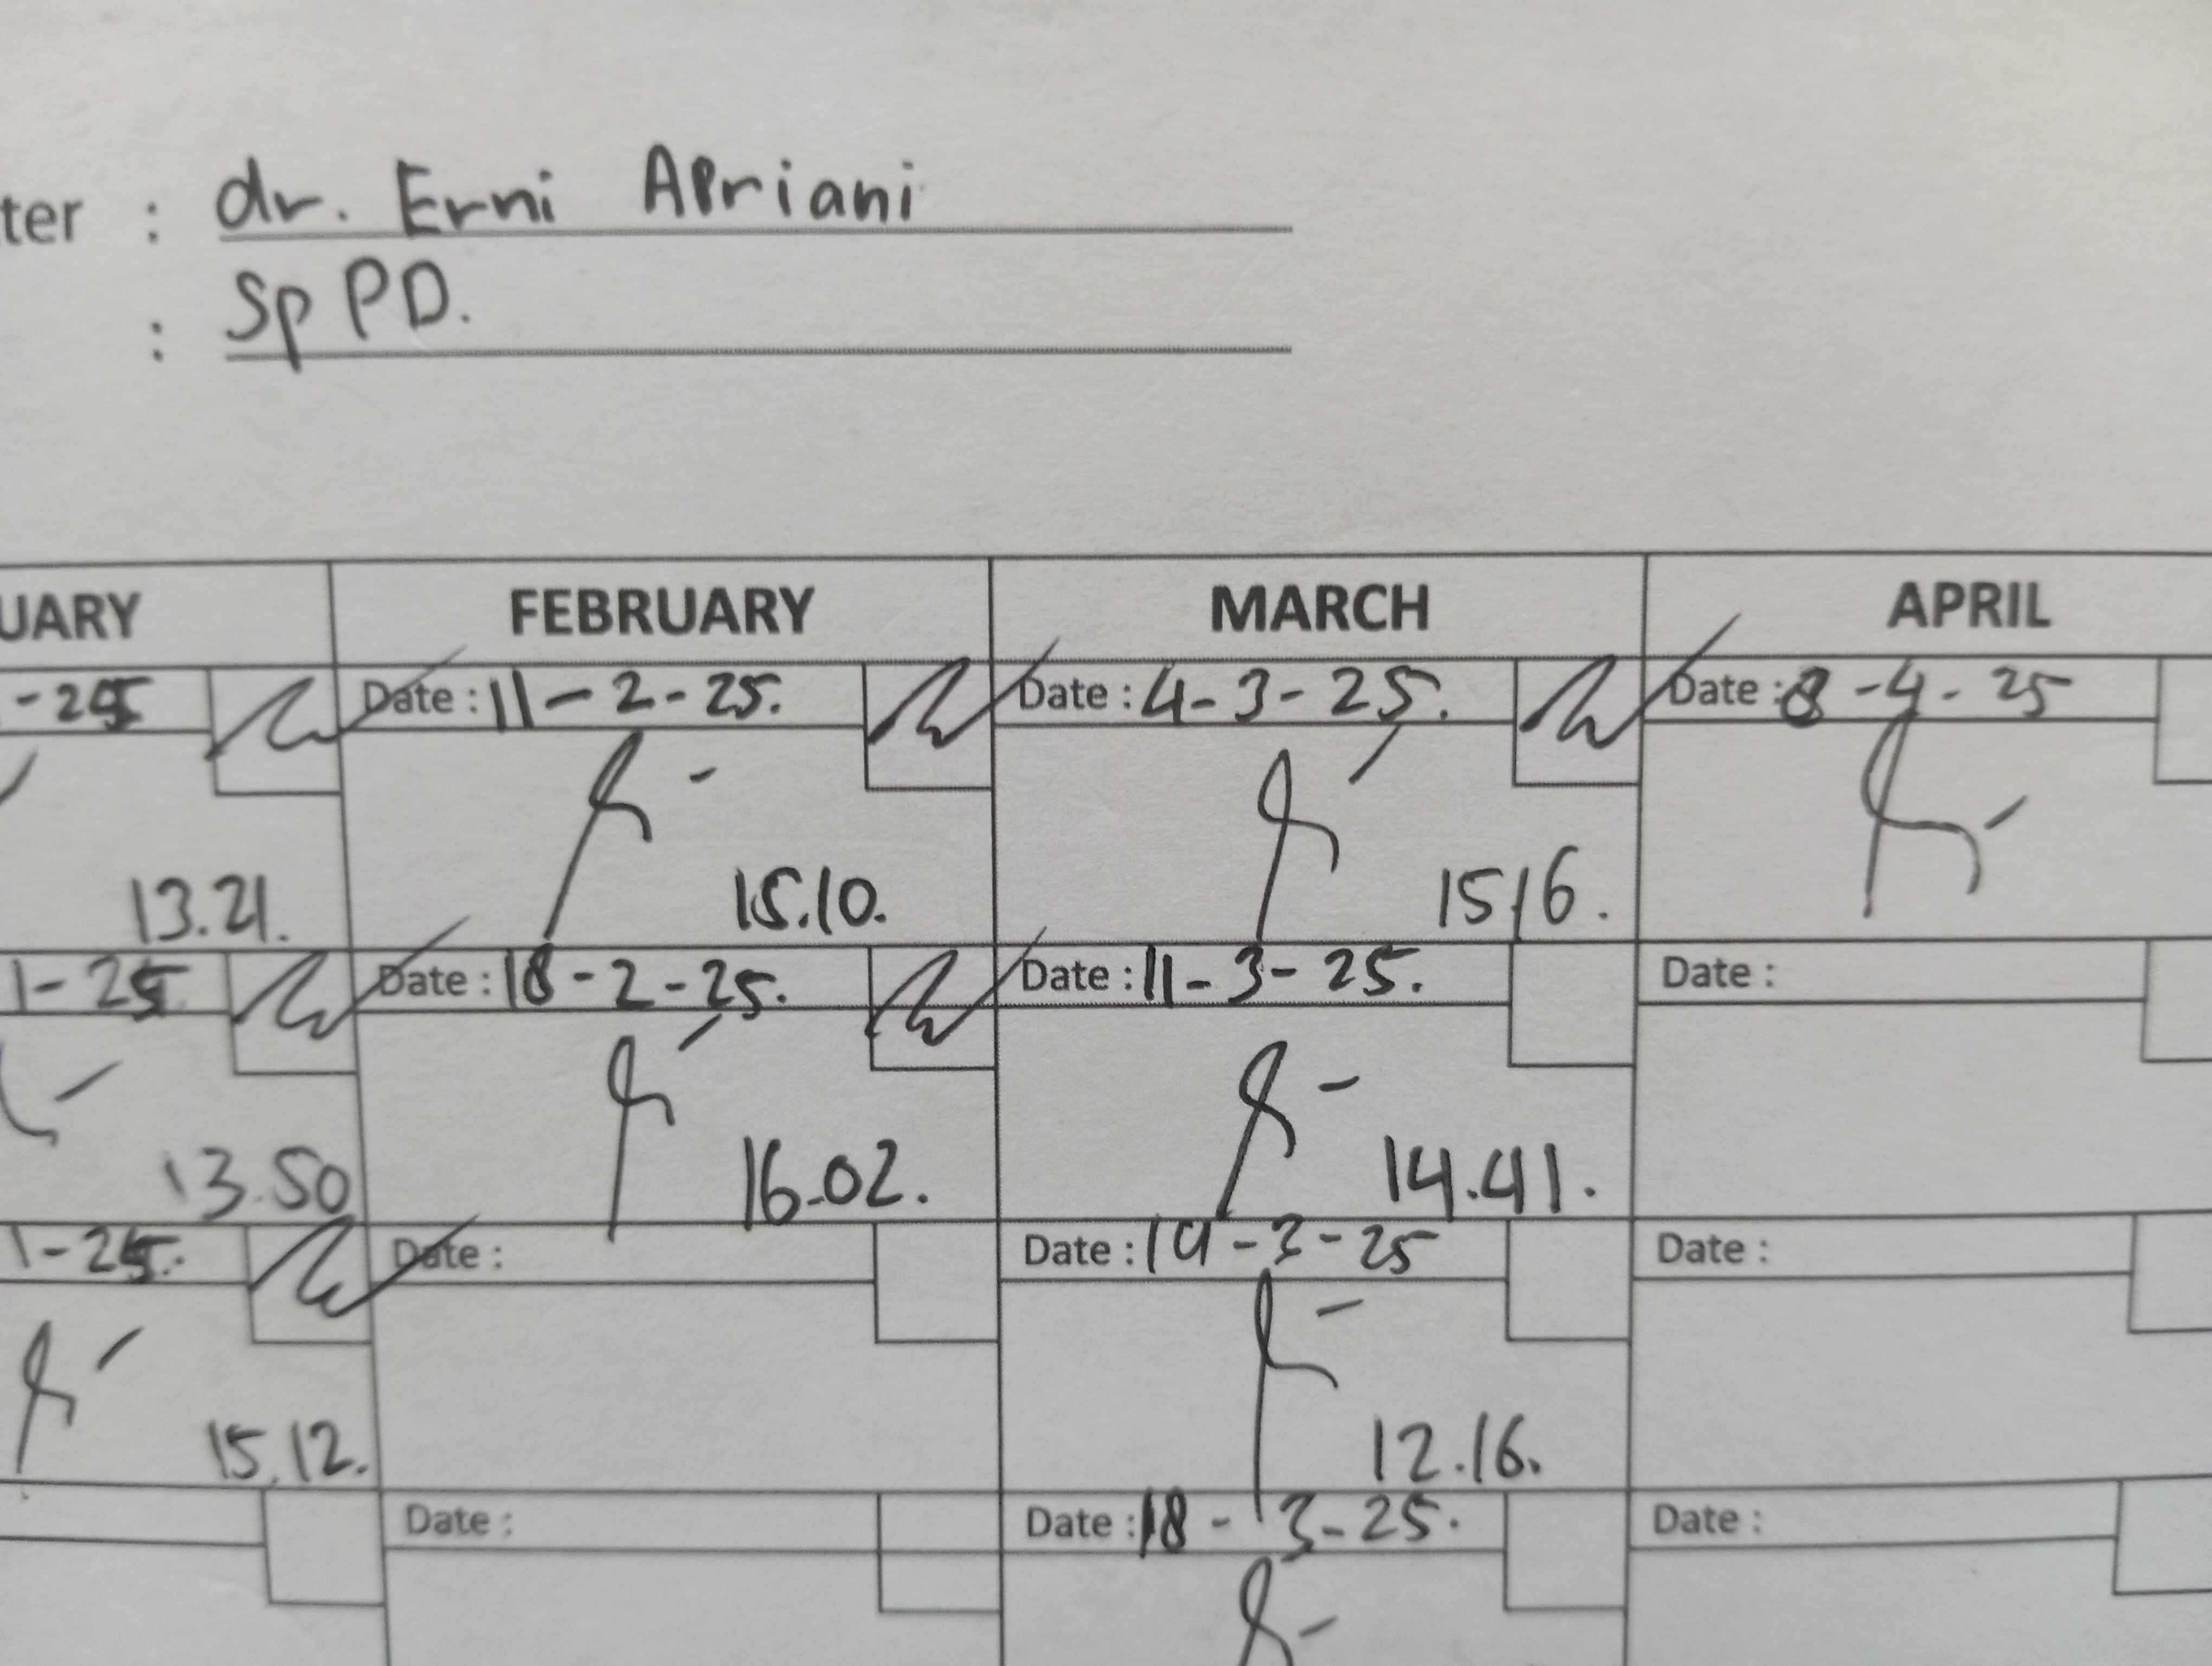 ter : dr. Erni Apriani
: Sp PD.
UARY FEBRUARY MARCH APRIL
-25 Date : 11-2-25. Date : 4-3-25. Date : 8-4-25
13.21. 15.10. 15.16.
1-25 Date : 18-2-25. Date : 11-3-25. Date :
13.50 16.02. 14.41.
1-25. Date : Date : 14-3-25 Date :
15.12. 12.16.
Date : Date : 18-3-25. Date :